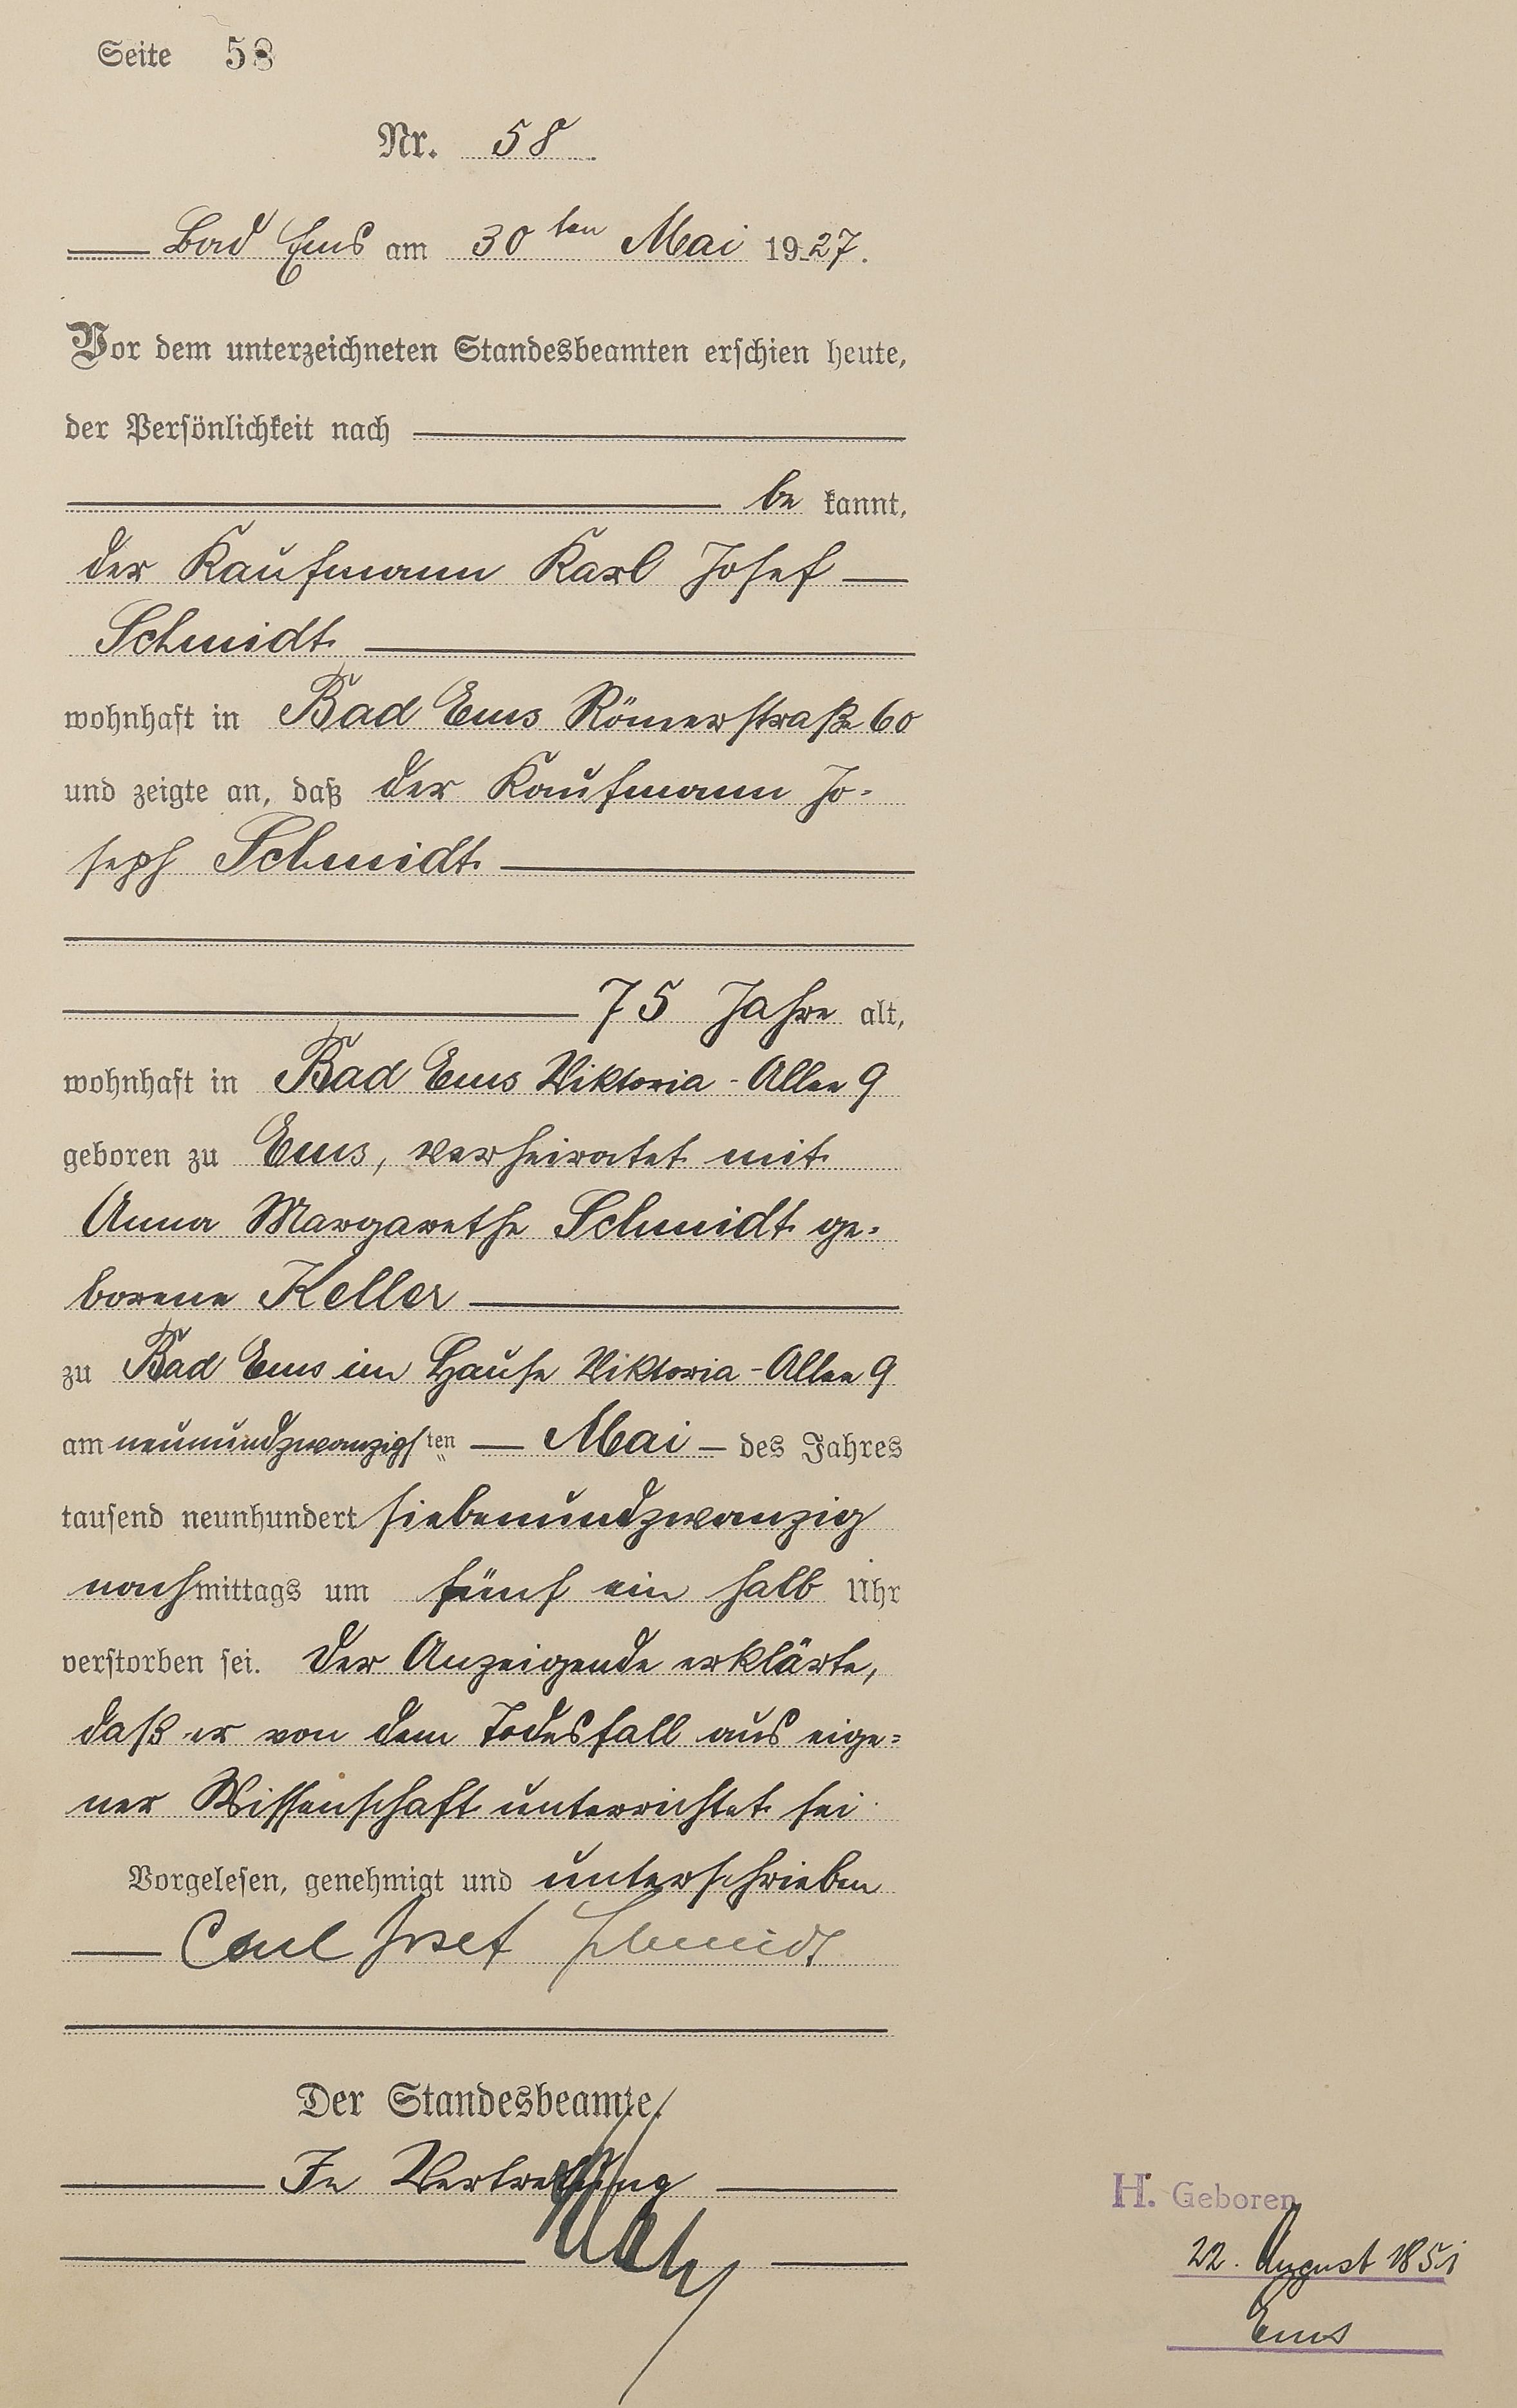 Seite 58
Nr. 58
Bad Ems am 30ten Mai 1927.
Vor dem unterzeichneten Standesbeamten erschien heute,
der Persönlichkeit nach
be kannt,
der Kaufmann Karl Josef
Schmidt
wohnhaft in Bad Ems Römerstraße 60
und zeigte an, daß der Kaufmann Jo-
seph Schmidt
75 Jahre alt,
wohnhaft in Bad Ems Viktoria-Allee 9
geboren zu Ems, verheiratet mit
Anna Margarethe Schmidt ge=
borene Keller
zu Bad Ems im Hause Viktoria-Allee 9
am neunundzwanzigsten Mai des Jahres
tausend neunhundert siebenundzwanzig
nachmittags um fünf ein halb Uhr
verstorben sei. Der Anzeigende erklärte,
daß er von dem Todesfall aus eige=
ner Wissenschaft unterrichtet sei
Vorgelesen, genehmigt und unterschrieben
Carl Josef Schmidt
Der Standesbeamte.
In Vertretung
H. Geboren
22. August 1851
Ems